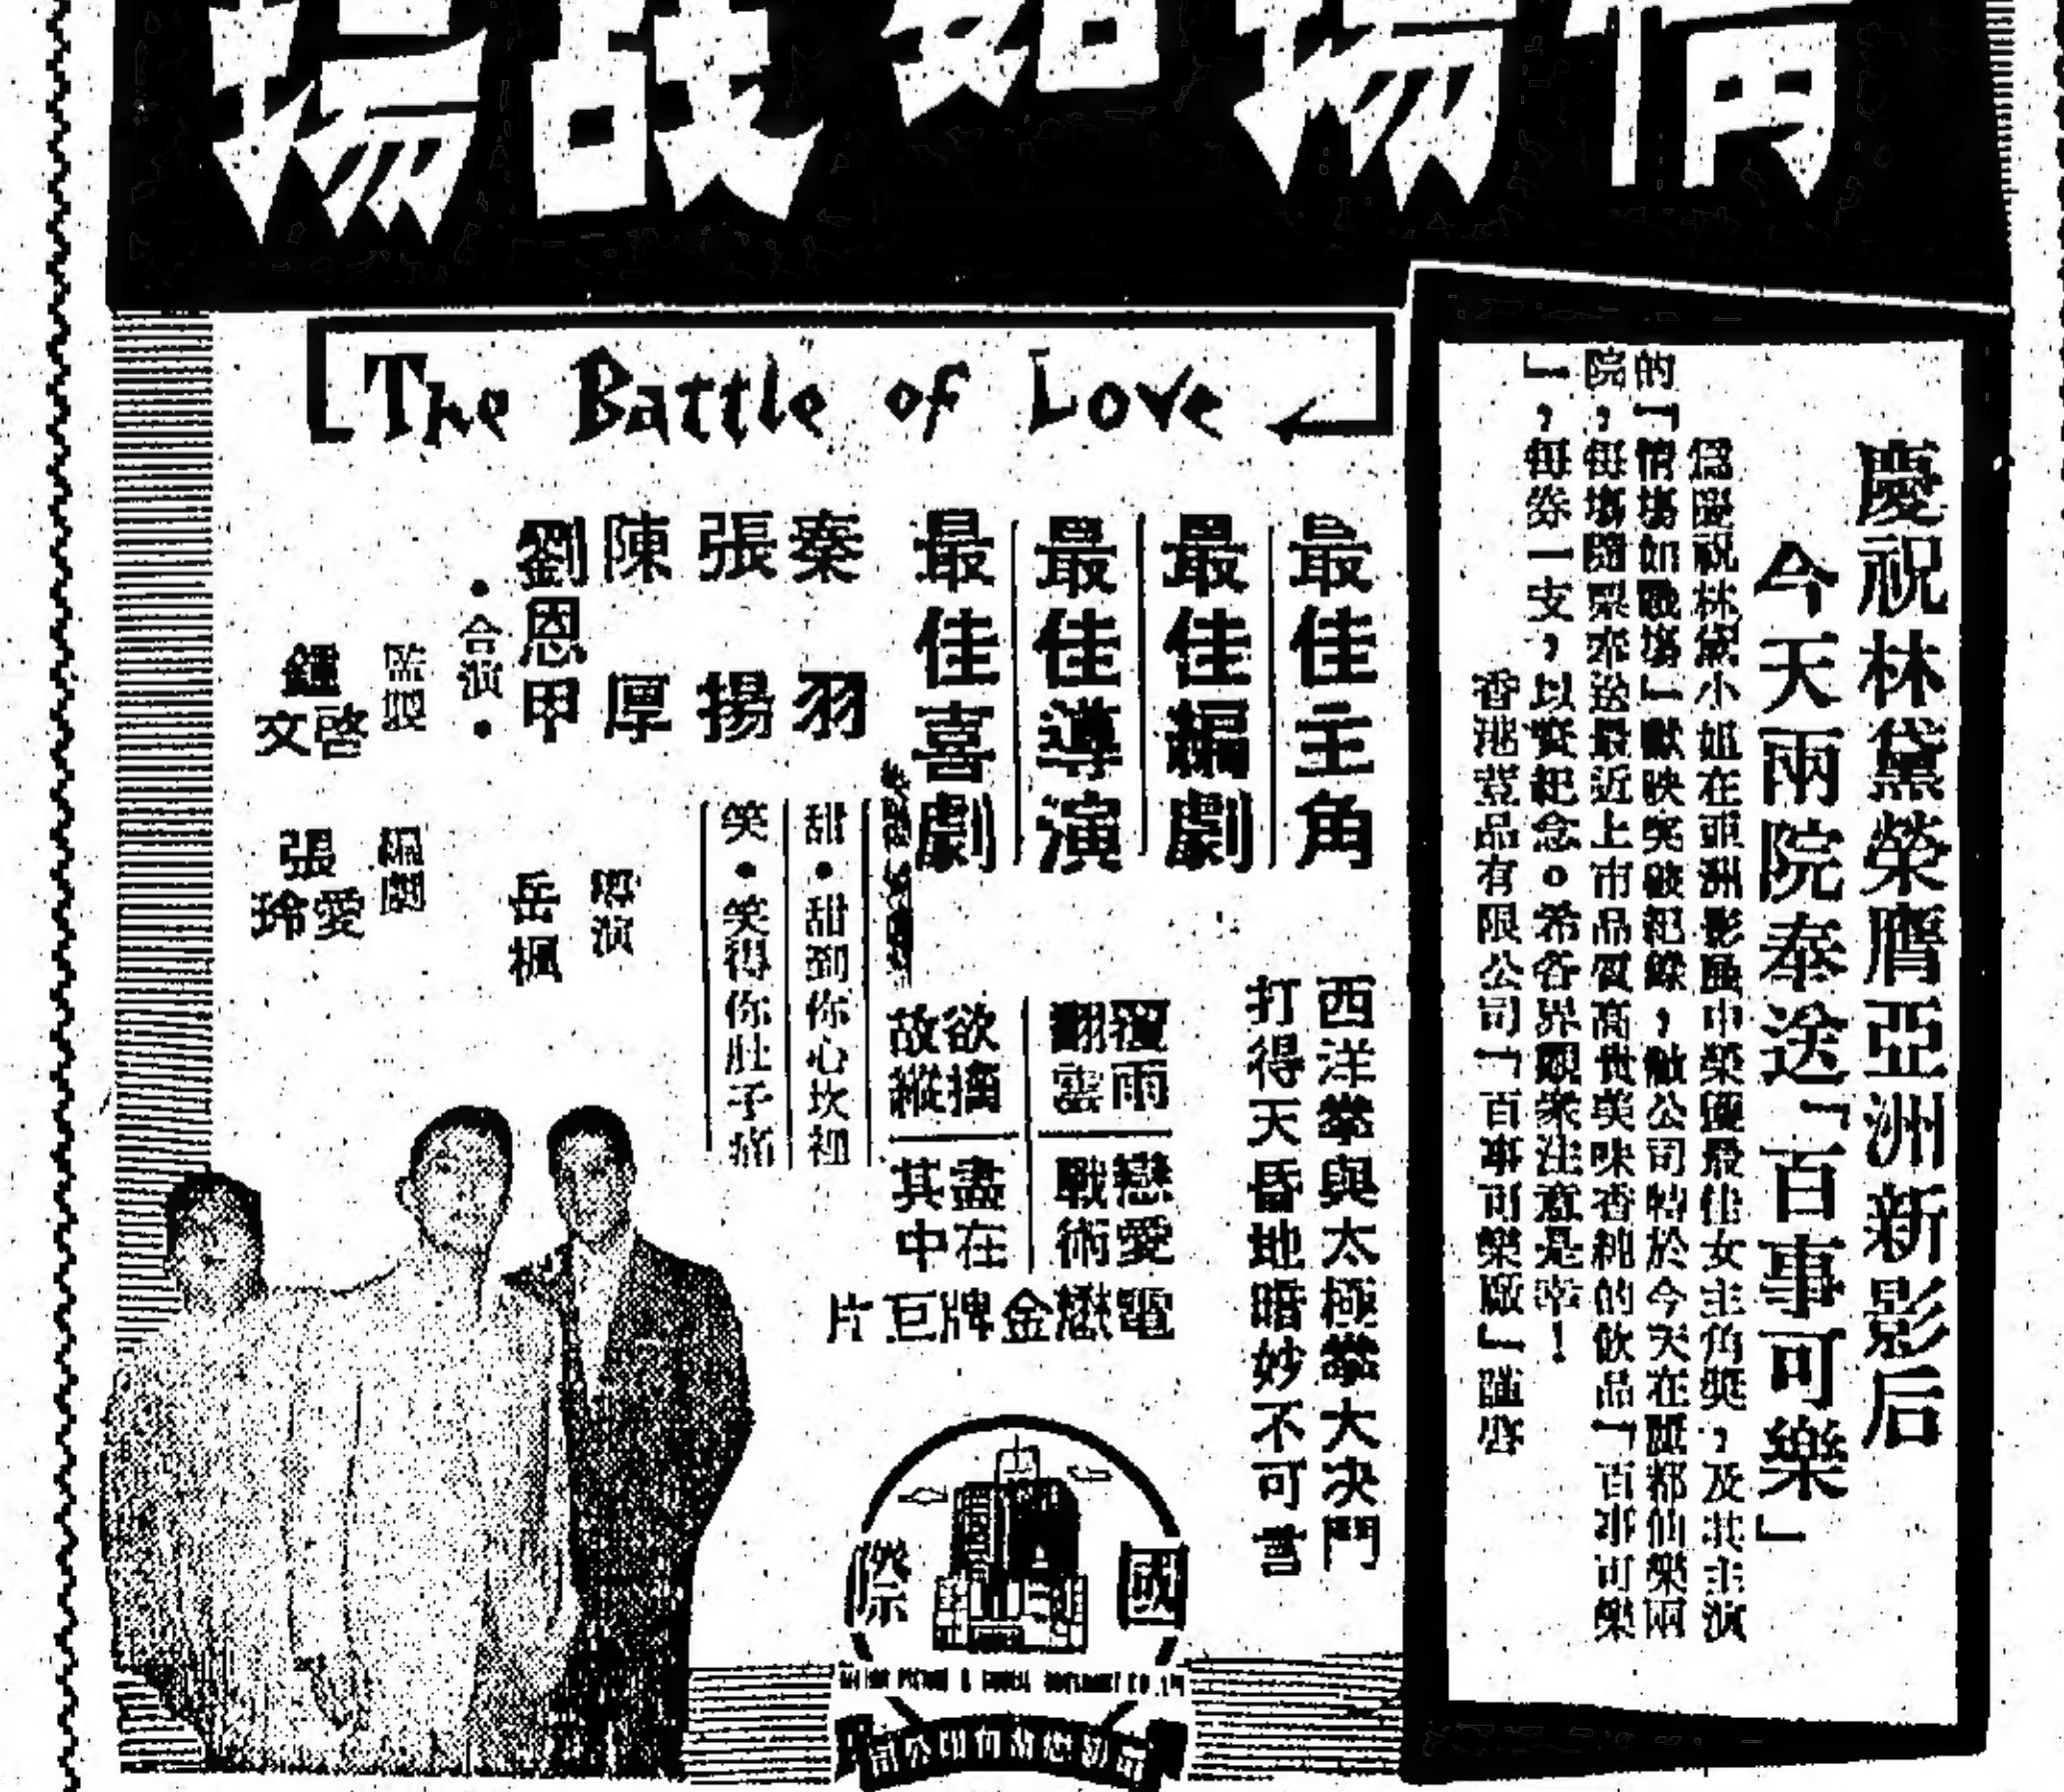 情場如戰場
The Battle of Love
慶祝林黛榮膺亞洲新影后
今天兩院奉送「百事可樂」
爲慶祝林黛小姐在亞洲影展中榮獲最佳女主角獎，及其主演
的「情場如戰場」獻映突破紀錄，敝公司特於今天在麗都仙樂兩
院，每場購票奉送最近上市品質高貴美味香純的飲品「百事可樂
」，每券一支，以資紀念。希各界觀衆注意是幸！
香港荳品有限公司「百事可樂廠」謹啓
最佳主角
最佳編劇
最佳導演
最佳喜劇
西洋拳與太極拳大决鬥
打得天昏地暗妙不可言
覆雨翻雲
欲擒故縱
戀愛戰術
盡在其中
電懋金牌巨片
秦羽
張揚
陳厚
劉恩甲
•合演•
甜•甜到你心坎裡
笑•笑得你肚子痛
導演
岳楓
監製
鍾啓文
編劇
張愛玲
國際